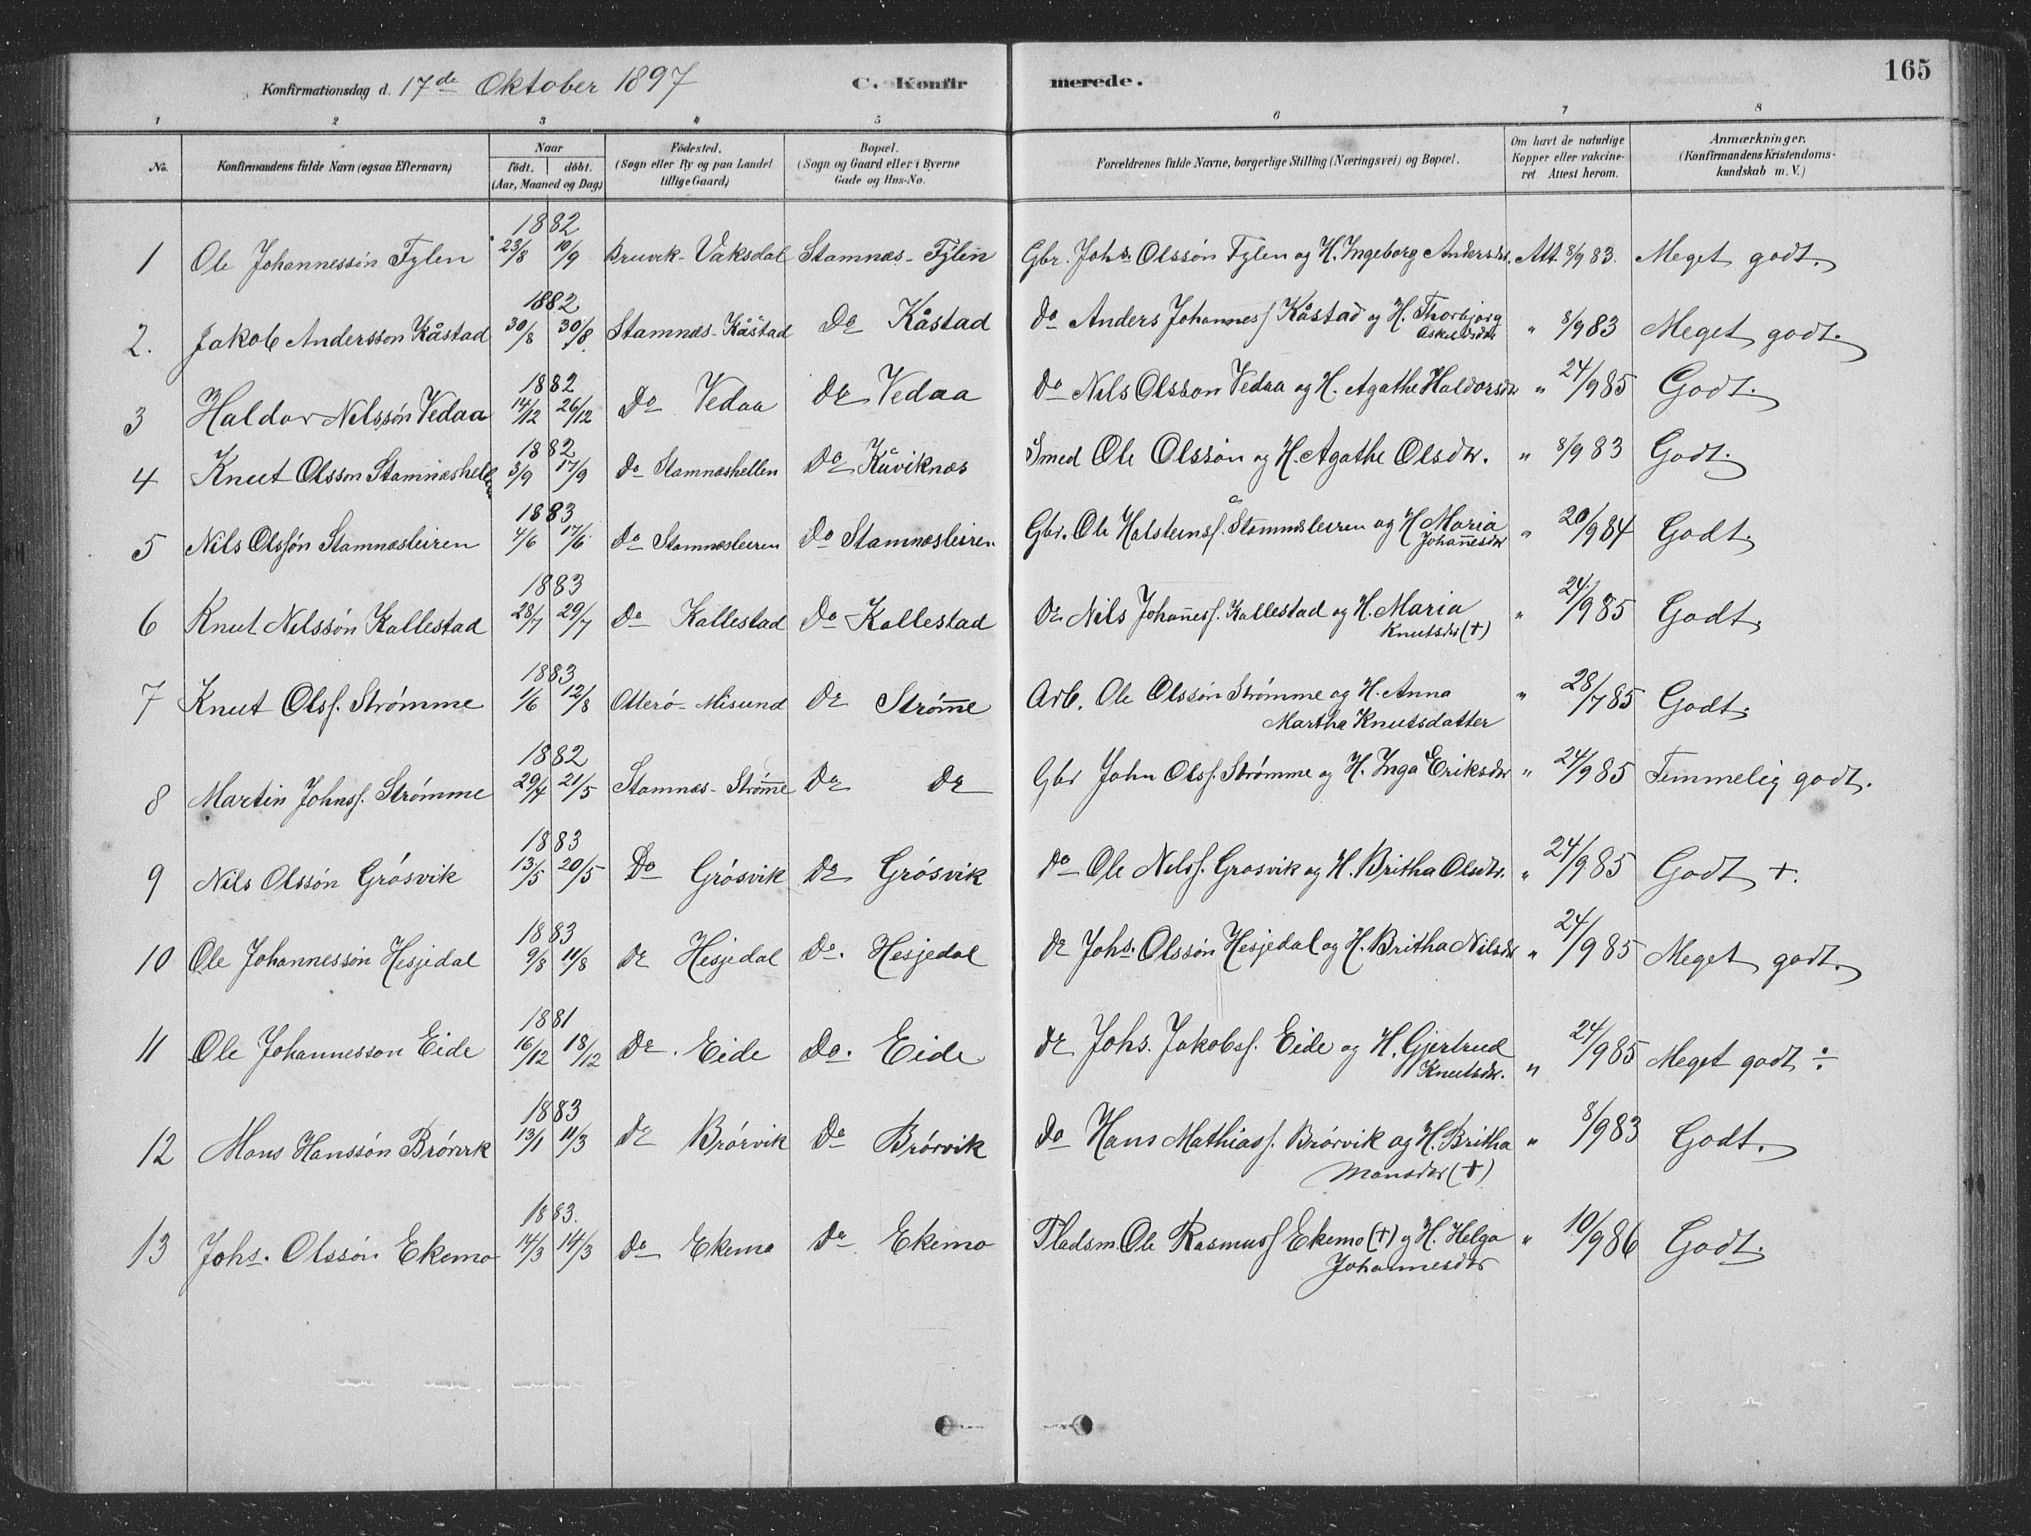 Konfirmationsdag d. 17de Oktober 1897 C. Konfir merede. 165
1 2 3 4 5 6 7 8
No. Konfirmandens fulde Navn (ogsaa Efternavn) Naar födt. döbt. (Aar, Maaned og Dag) Födested. (Sogn eller By og paa Landet tillige Gaard) Bopæl. (Sogn og Gaard eller i Byerne Gade og Hus-No. Forældrenes fulde Navne, borgerlige Stilling (Næringsvei) og Bopæl. Om havt de naturlige Kopper eller vakcineret. Attest herom. Anmærkninger. (Konfirmandens Kristendomskundskab m. V.)
1882
1 Ole Johannessön Fylen 23/8 10/9 Bruvik - Vaksdal Stamnæs - Fylen Gbr. Johs Olssön Fylen og H. Ingeborg Andersdr. Att. 8/9 83. Meget godt.
1882
2. Jakob Andersson Kåstad 30/8 30/8 Stamnæs - Kåstad Do Kåstad Do Anders Johannesf Kåstad og H. Thorbjørg Askeldsdtr " 8/9 83 Meget godt.
1882
3 Haldor Nilssön Vedaa 14/12 26/12 Do Vedaa Do Vedaa Do Nils Olsson Vedaa og H. Agathe Haldorsdr " 24/9 85 Godt.
1882
4 Knut Olsson Stamnæshellen 3/9 17/9 Do Stamnæshellen Do Kåviknæs Smed Ole Olssön og H. Agathe Olsdtr. " 8/9 83 Godt.
1883
5 Nils Olssön Stamnæsleiren 4/6 17/6 Do Stamnæsleiren Do Stamnæsleiren Gbr. Ole Halsteinsf. Stamnæsleiren og H Maria Johannesdtr " 20/9 84 Godt.
1883
6 Knut Nilssön Kallestad 28/7 29/7 Do Kallestad Do Kallestad Do Nils Johannesf. Kallestad og H. Maria Knutsdtr (+) " 24/9 85 Godt.
1883
7 Knut Olsf. Strömme 1/6 12/8 Otterö - Misund Do Strömme Arb. Ole Olssön Strömme og H. Anna Martha Knutsdatter " 28/7 85 Godt.
1882
8 Martin Johnsf. Strömme 29/4 21/5 Stamnæs - Strömme Do Do Gbr John Olsf. Strömme og H. Inga Eriksdtr " 24/9 85 Temmelig godt.
1883
9 Nils Olssön Grösvik 13/5 20/5 Do Grösvik Do Grösvik Do Ole Nilsf. Grösvik og H. Britha Olsdtr. " 24/9 85 Godt +.
1883
10 Ole Johannessön Hesjedal 9/8 11/8 Do Hesjedal Do. Hesjedal Do Johs. Olssön Hesjedal og H. Britha Nilsdr " 24/9 85 Meget godt.
1881
11 Ole Johannesson Eide 16/12 18/12 Do. Eide Do. Eide Do Johs. Jakobsf. Eide og H. Gjertrud Knutsdtr. " 24/9 85 Meget godt ÷
1883
12 Mons Hanssön Brörvik 13/1 11/3 Do Brörvik Do Brörvik Do Hans Mathiasf. Brörvik og H. Britha Monsdtr (+) " 8/9 83 Godt.
1883.
13 Johs. Olssön Ekemo 14/3 14/3 Do Ekemo Do Ekemo Pladsm. Ole Rasmusf Ekemo (+) og H. Helga Johannesdtr " 10/9 86 Godt.